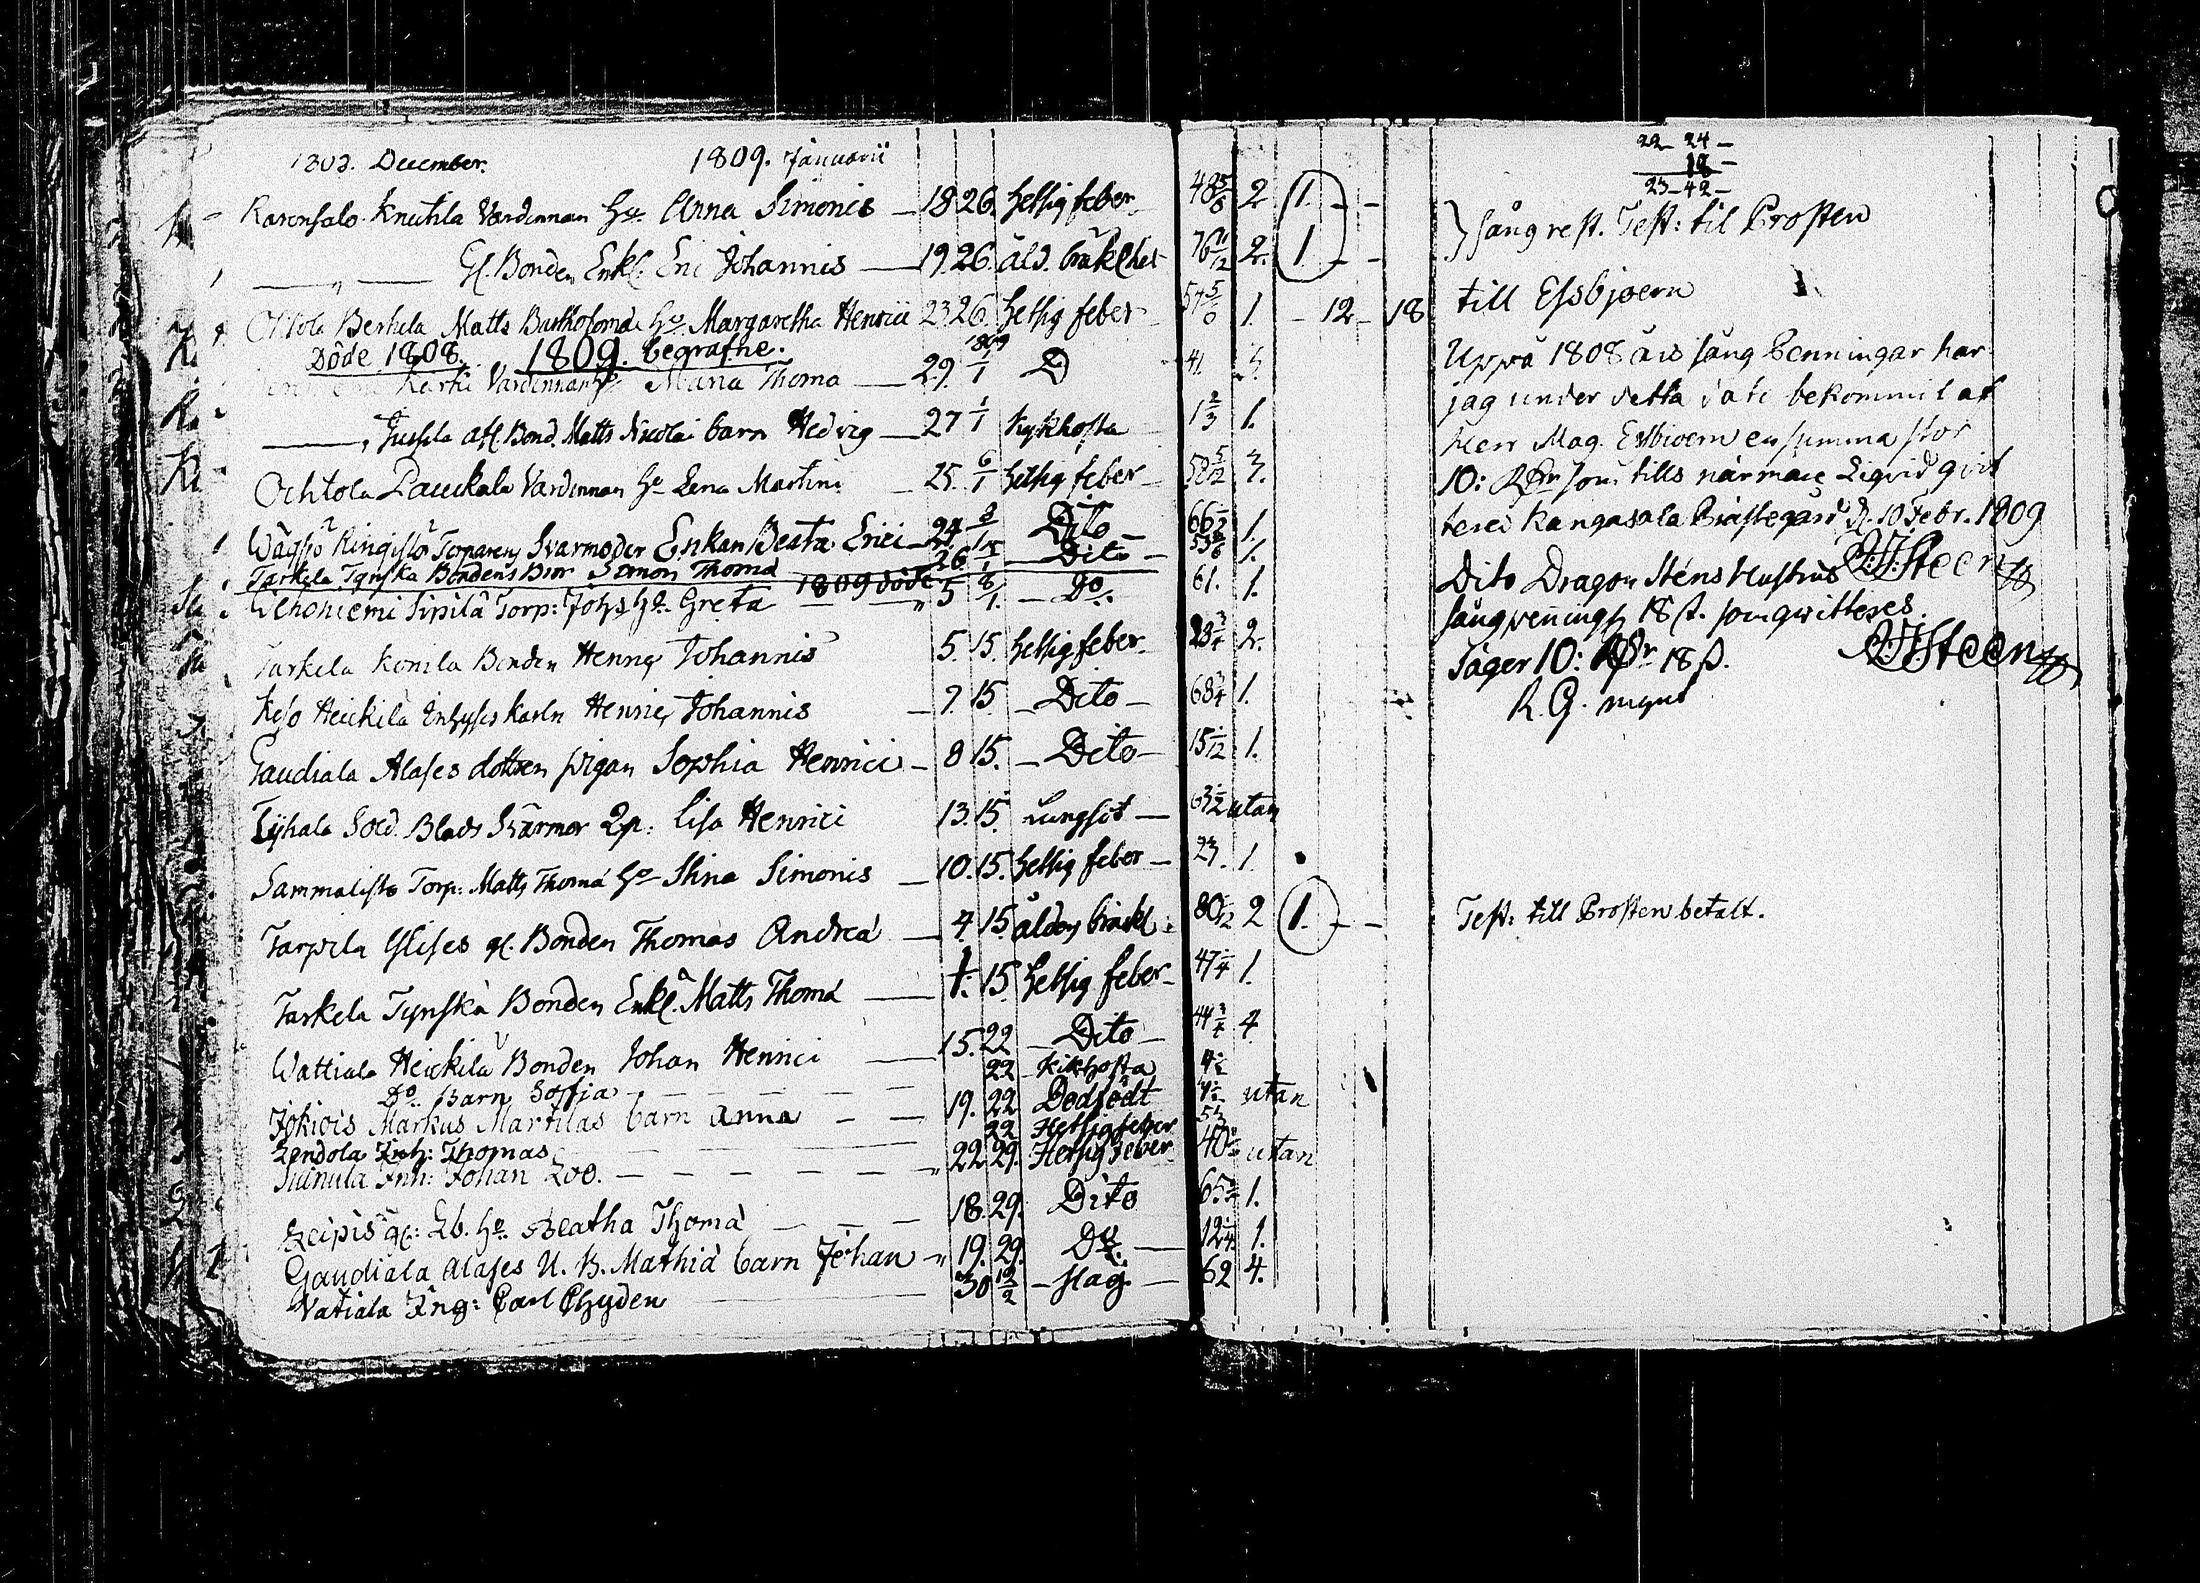 1808. December. 1809. Januarii
Karensalo Knutila Vårdinnan Ho Anna Simonis — 18. 26. hettig feber 48 5/6 2 1. – –
— „ — Gl. Bonden Enkl. Eric Johannis — 19. 26. åld. bräklhet 76 11/12 2. 1 – –
Ohtola Berkela Matts Bartholomæi Ho Margaretha Henrici 23. 26. hettig feber 57 5/6 1. – 12 – 18
Döde 1808. 1809. begrafne.
Kertu Vårdinnan Ho Maria Thomæ — 29. 1/1 D 41.
— , Jussila afl. Bond. Matts Nicolai barn Hedvig — 27 1/1 kykhosta 1 2/3 1.
Ochtola Pauckala Vårdinnan Ho Lena Martini 25. 6/1 hettig feber 50 5/12 3.
Wägsjö Ringistö Torparens Svärmoder Enkan Beata Erici — 24 8/1 Dito 66 1/2 1.
Tarkela Tynskä Bondens Bror Simon Thomæ 26 1/1 Dito 1.
1809 döde
Wehoniemi Sipilä Torp: Johs Ho. Greta — „ 5 8/1. – Do. 61. 1.
Tarkela Konila Bonden Henric Johannis 5. 15. hettig feber 2.
Keso Heickilä Inhyses Karln Henric Johannis – 7. 15. – Dito – 68 3/4 1.
Gaudiala Alases dottren pigan Sophia Henrici – 8 15. – Dito – 15 1/12 1.
Tyhala Sold. Blads Svärmor Lisa Henrici 13. 15. Lungsot — 63 1/2 utan
Sammalisto Torp: Matts Thomæ Ho Stina Simonis — 10. 15. hettig feber — 23. 1.
Tarpila Ylises gl. Bonden Thomas Andreæ — 4. 15. ålders bräckl. 80 1/12 2 1. – –
Tarkela Tynskä Bonden Enkl. Matts Thomæ — 1. 15 hettig feber 47 1/4 1.
Wattiala Heickilä Bonden Johan Henrici — 15. 22 – Dito – 44 3/4 4
Do. Barn Soffia — — — 22 Kikhosta
Jokiois Markus Martilas barn Anna — — 19. 22 Dödfödt utan
Lendola Inh: Thomas — — — 22 Hettigfeber
Inh: Johan Loo. — — — „ 22 29. Hettig feber 40 utan
Leipis gl: Lb. Ho. Beatha Thomæ — — — 18. 29. Dito 65 1.
Gaudiala Alases U. B. Mathiæ barn Johan – „ 19. 29. Do. — 12 1/4 1.
Vatiala Ing: Carl Chyden — 30 12/2 – slag. — 62 4.
22 – 24 –
18 –
23 – 42 –
} sång rest. Test: til Prosten
till Essbjoern
Uppå 1808 års sång penningar har
jag under detta dato bekommit af
Herr Mag. Essbjoern en summa stor
10: Rdr som tills närmare Liqvid qvit
teres Kangasala Prästegård d. 10 Febr. 1809
Dito Dragon Stens Hustrus Steen
sång penning 18 s. som qvitteres.
Säger 10: Rdr 18 s. Steen
Test: till Prosten betalt.